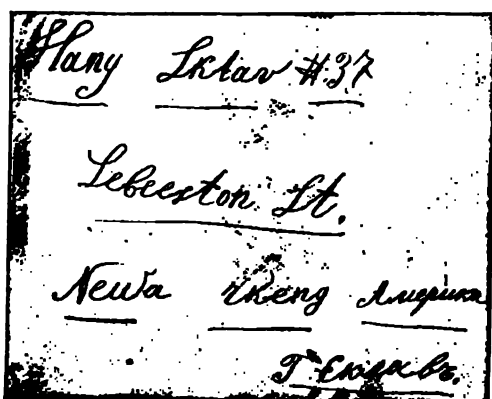 Hany Sktav #37
Lebeeston St.
Newa rkeng Америка